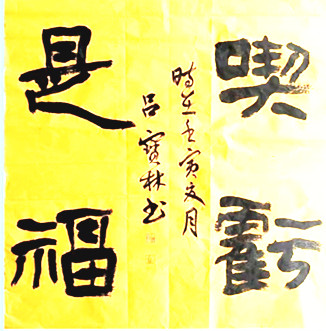 喫虧
是福
時在壬寅文月
呂寳林书